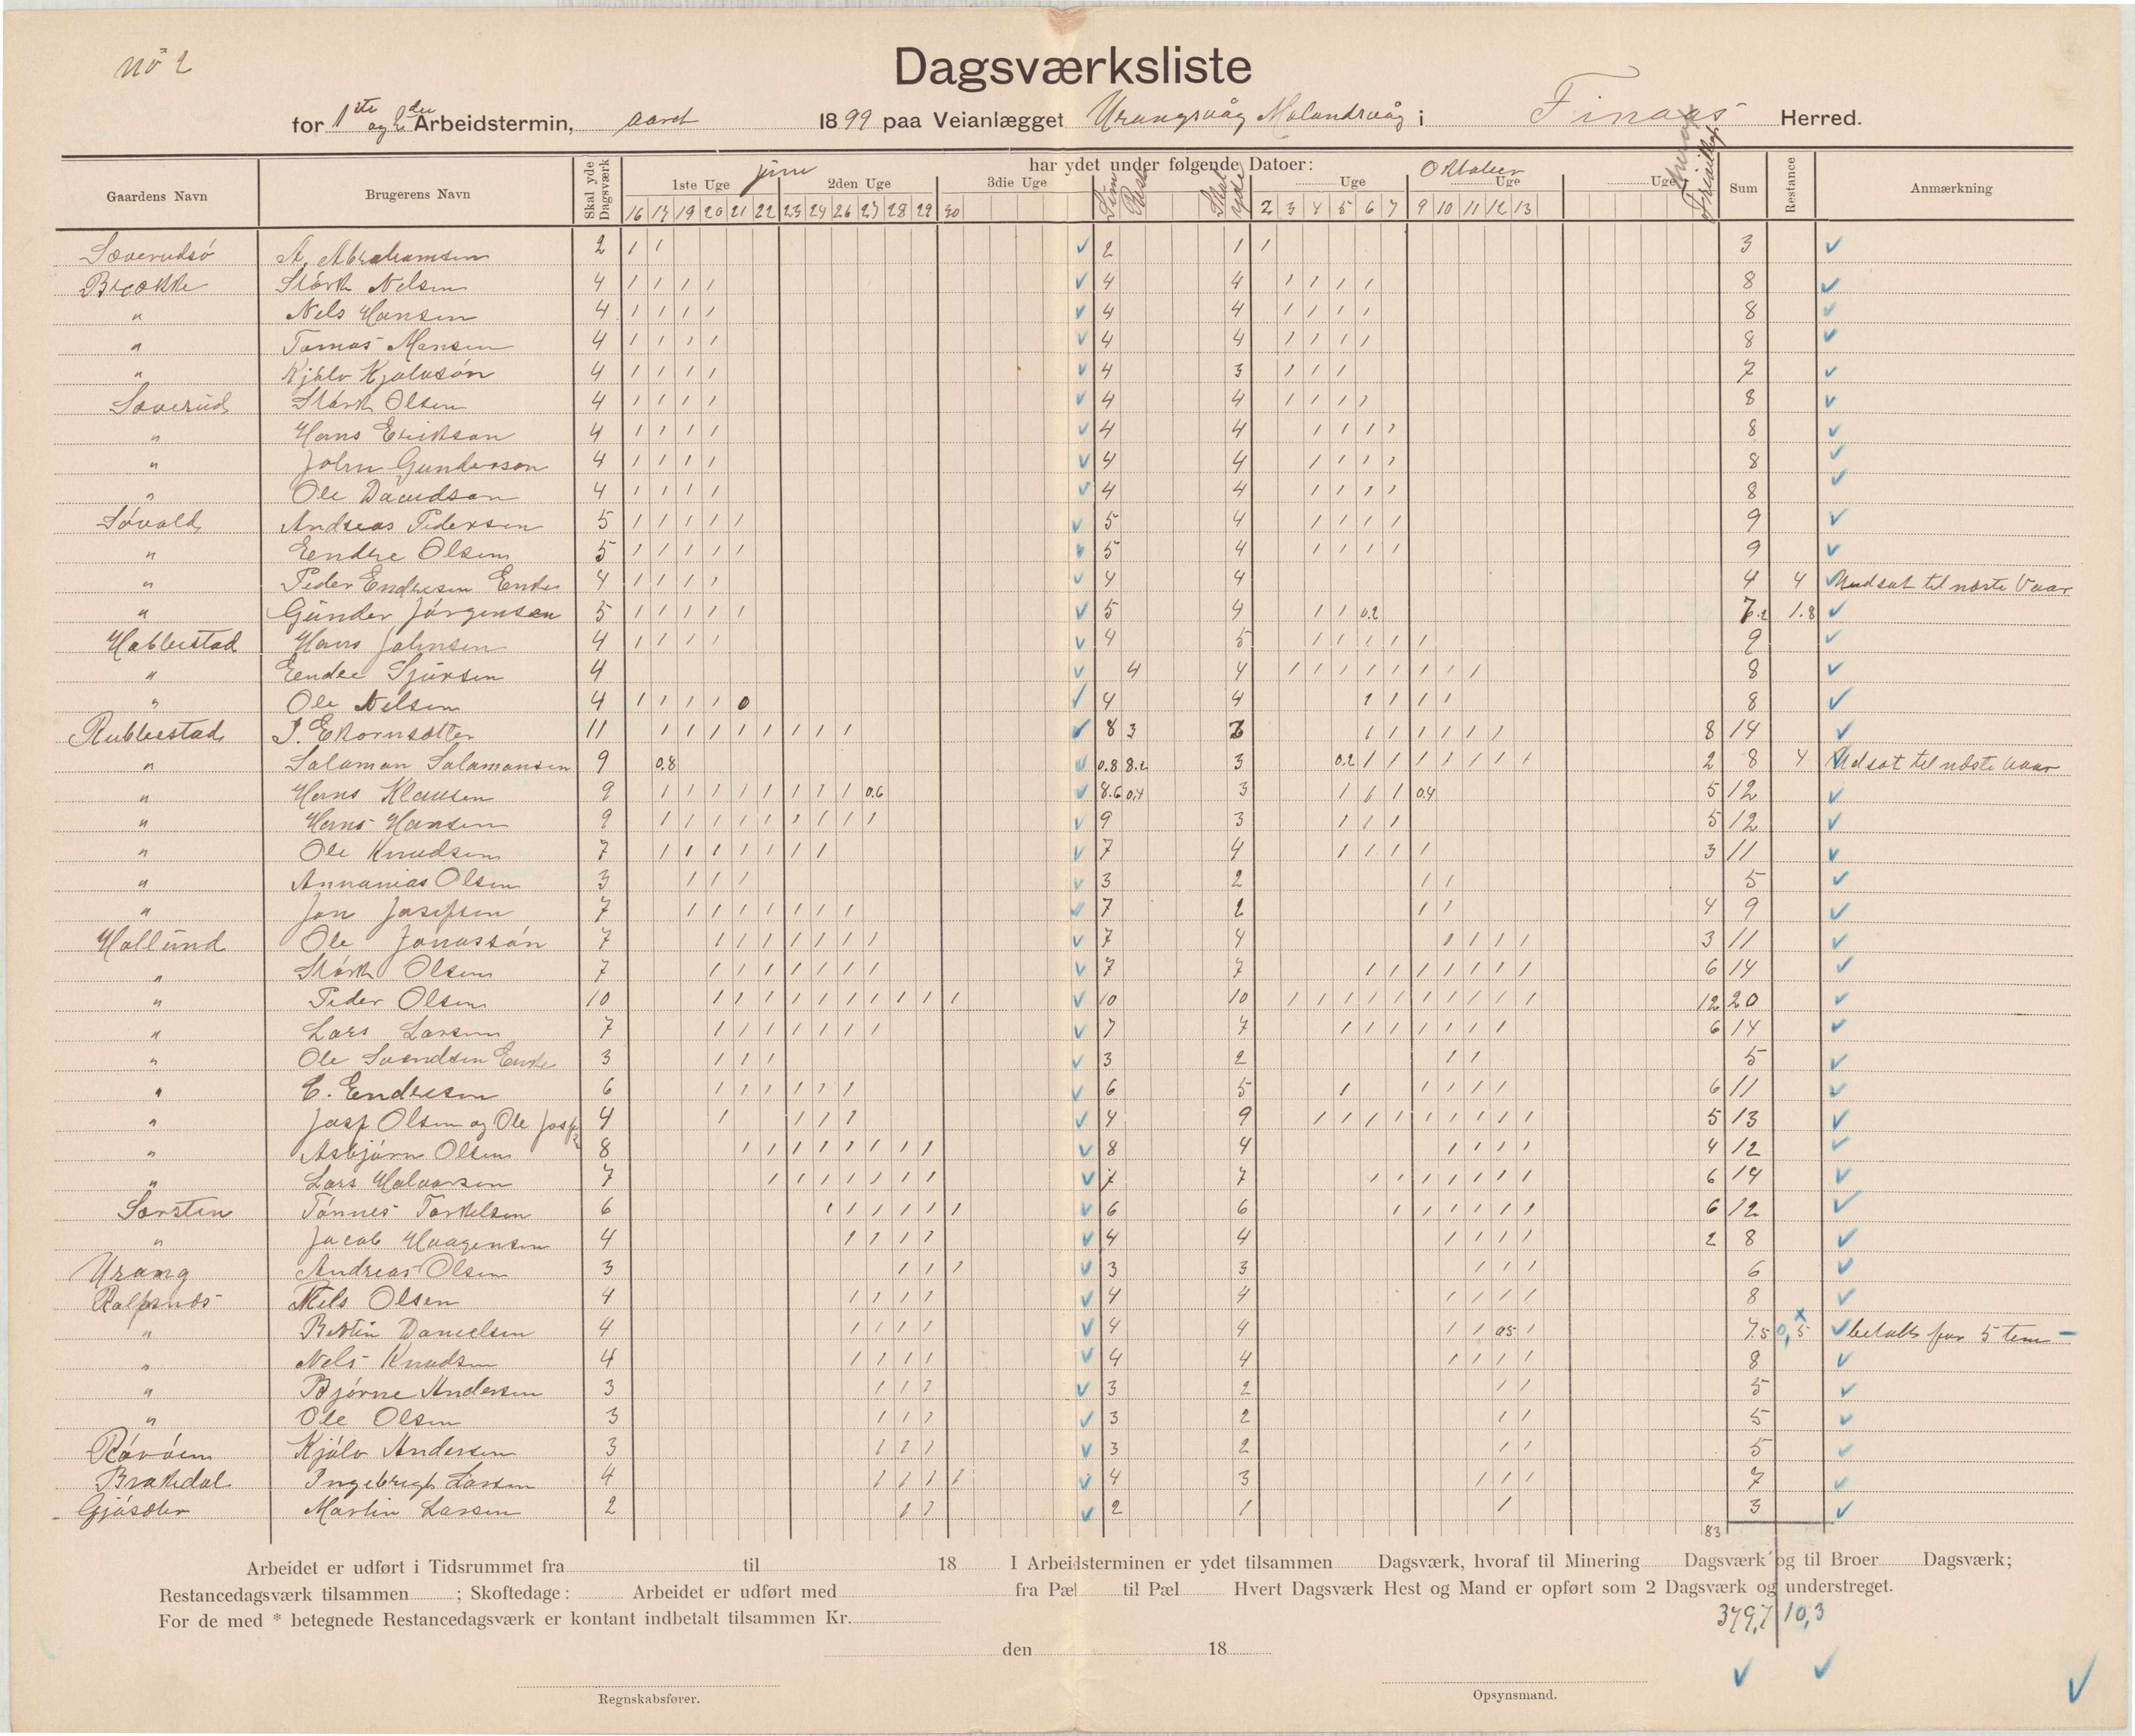 No 2
Dagsværksliste
for 1ste og 2den Arbeidstermin, aaret 1899 paa Veianlægget Urangsvåg Molandsvåg i Finaas Herred.
Gaardens Navn Brugerens Navn Skal yde Dagsværk har ydet under følgende Datoer: Sum Restance Anmærkning
1ste Uge juni 2den Uge 3die Uge Sum Rest Skal yde Uge Oktober Uge Uge
16 17 19 20 21 22 23 24 26 27 28 29 30 2 3 4 5 6 7 9 10 11 12 13
Sæverudsø A. Abrahamsen 2 1 1 2 1 1 3
Brække Størk Nelsen 4 1 1 1 1 4 4 1 1 1 1 8
" Nels Hansen 4 1 1 1 1 4 4 1 1 1 1 8
" Tomas Monsen 4 1 1 1 1 4 4 1 1 1 1 8
" Kjølv Kjølvsøn 4 1 1 1 1 4 3 1 1 1 7
Sæverud Størk Olsen 4 1 1 1 1 4 4 1 1 1 1 8
" Hans Erikson 4 1 1 1 1 4 4 1 1 1 1 8
" John Gunderson 4 1 1 1 1 4 4 1 1 1 1 8
" Ole Davidson 4 1 1 1 1 4 4 1 1 1 1 8
Søvold Andreas Pedersen 5 1 1 1 1 1 5 4 1 1 1 1 9
" Eendre Olsen 5 1 1 1 1 1 5 4 1 1 1 1 9
" Peder Endresen Enke 4 1 1 1 1 4 4 4 4 Uudsat til næste Vaar
" Gunder Jørgensen 5 1 1 1 1 1 5 4 1 1 0.2 7.2 1.8
Habbestad Hans Johnsen 4 1 1 1 1 4 5 1 1 1 1 1 9
" Eendre Sjursen 4 4 4 1 1 1 1 1 1 1 1 8
" Ole Nelsen 4 1 1 1 1 0 4 4 1 1 1 1 8
Rubbestad J. Ekornsætter 11 1 1 1 1 1 1 1 1 8 3 1 1 1 1 1 1 8 14
" Salamon Salamonsen 9 0.8 0.8 8.2 3 0.2 1 1 1 1 1 1 1 2 8 4 Udsat til næste Vaar
" Hans Klausen 9 1 1 1 1 1 1 1 1 0.6 8.6 0.4 3 1 1 1 0.4 5 12
" Hans Hansen 9 1 1 1 1 1 1 1 1 1 9 3 1 1 1 5 12
" Ole Knudsen 7 1 1 1 1 1 1 1 7 4 1 1 1 1 3 11
" Annanias Olsen 3 1 1 1 3 2 1 1 5
" Jon Josefsen 7 1 1 1 1 1 1 1 7 2 1 1 4 9
Hollund Ole Jonassøn 7 1 1 1 1 1 1 1 7 4 1 1 1 1 3 11
" Størk Olsen 7 1 1 1 1 1 1 1 7 7 1 1 1 1 1 1 1 6 14
" Peder Olsen 10 1 1 1 1 1 1 1 1 1 1 10 10 1 1 1 1 1 1 1 1 1 1 12 20
" Lars Larsen 7 1 1 1 1 1 1 1 7 7 1 1 1 1 1 1 1 6 14
" Ole Svendsen Enke 3 1 1 1 3 2 1 1 5
" E. Endresen 6 1 1 1 1 1 1 6 5 1 1 1 1 1 6 11
" Josf Olsen og Ole Josf 4 1 1 1 1 4 9 1 1 1 1 1 1 1 1 1 5 13
" Asbjørn Olsen 8 1 1 1 1 1 1 1 1 8 4 1 1 1 1 4 12
" Lars Halvorsen 7 1 1 1 1 1 1 1 7 7 1 1 1 1 1 1 1 6 14
Sørsten Tønnes Torkelsen 6 1 1 1 1 1 1 6 6 1 1 1 1 1 1 6 12
" Jacob Haagensen 4 1 1 1 1 4 4 1 1 1 1 2 8
Urang Andreas Olsen 3 1 1 1 3 3 1 1 1 6
Rolfsnæs Nels Olsen 4 1 1 1 1 4 4 1 1 1 1 8
" Bertin Danielsen 4 1 1 1 1 4 4 1 1 0.5 1 7.5 0,5 betalt for 5 tem
" Nels Knudsen 4 1 1 1 1 4 4 1 1 1 1 8
" Bjørne Andersen 3 1 1 1 3 2 1 1 5
" Ole Olsen 3 1 1 1 3 2 1 1 5
Røvøen Kjølv Andersen 3 1 1 1 3 2 1 1 5
Brakedal Ingebrigt Larsen 4 1 1 1 1 4 3 1 1 1 7
Gjøsæter Martin Larsen 2 1 1 2 1 1 3
83
Arbeidet er udført i Tidsrummet fra til 18 I Arbeidsterminen er ydet tilsammen Dagsværk, hvoraf til Minering Dagsværk og til Broer Dagsværk;
Restancedagsværk tilsammen ; Skoftedage: Arbeidet er udført med fra Pæl til Pæl Hvert Dagsværk Hest og Mand er opført som 2 Dagsværk og understreget.
For de med * betegnede Restancedagsværk er kontant indbetalt tilsammen Kr.
379,7 10,3
den 18
Regnskabsfører. Opsynsmand.